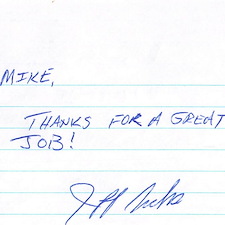 MIKE,
THANKS FOR A GREAT
JOB!